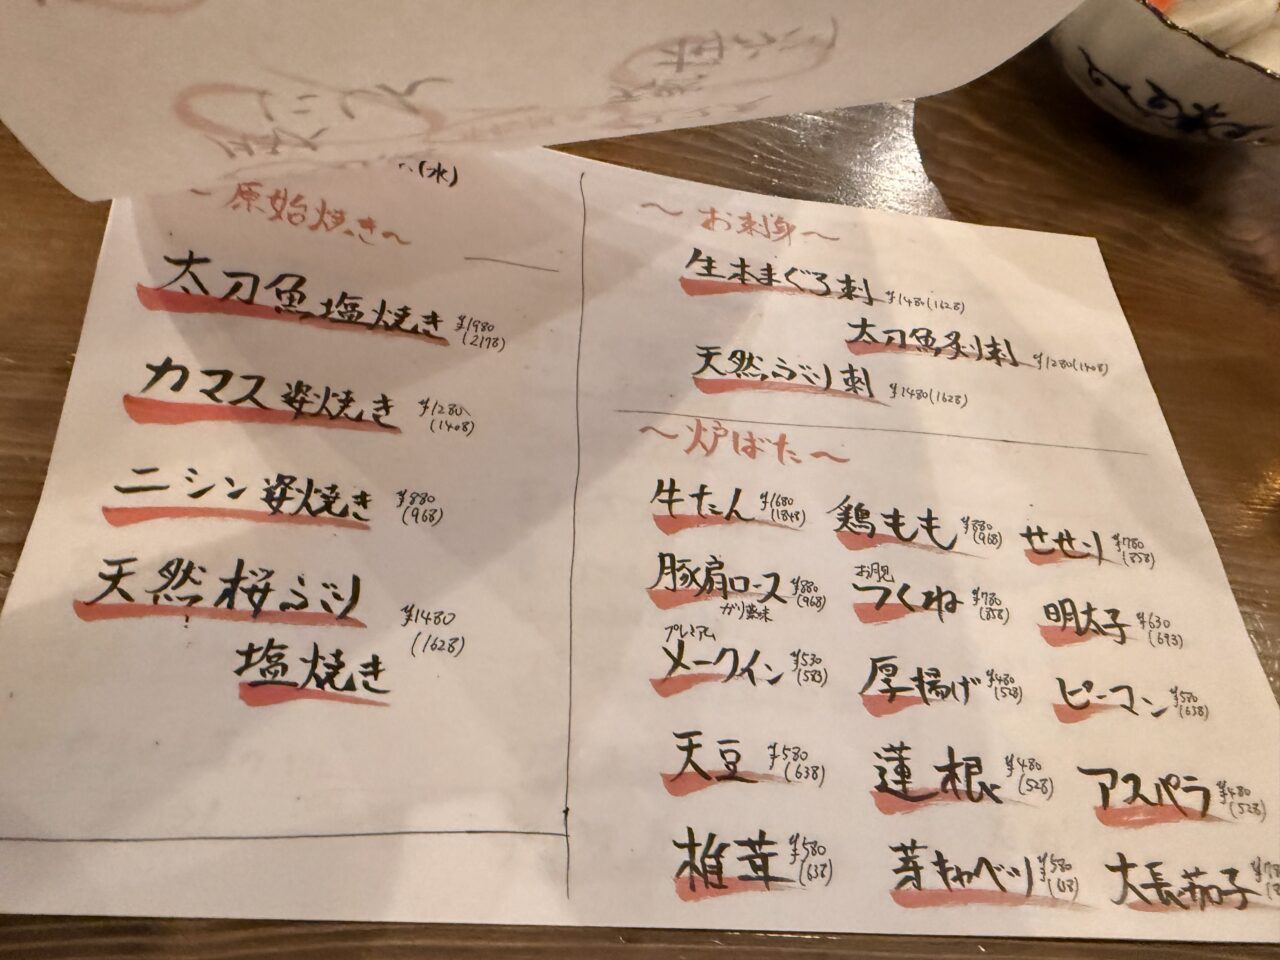 (水)
～原始焼き～
太刀魚塩焼き ¥1980
(2178)
カマス姿焼き ¥1280
(1408)
ニシン姿焼き ¥880
(968)
天然桜ぶり
塩焼き ¥1480
(1628)
～お刺身～
生本まぐろ刺 ¥1480(1628)
太刀魚炙り刺 ¥1280(1408)
天然ぶり刺 ¥1480(1628)
～炉ばた～
牛たん ¥1680
(1848)
鶏もも ¥880
(968)
せせり ¥780
(858)
豚肩ロース ¥880
(968)
ガリ薬味
お月見
つくね ¥780
(858)
明太子 ¥630
(693)
プレミアム
メークイン ¥530
(583)
厚揚げ ¥480
(528)
ピーマン ¥580
(638)
天豆 ¥580
(638)
蓮根 ¥480
(528)
アスパラ ¥480
(528)
椎茸 ¥580
(638)
芽キャベツ ¥580
(638)
大長茄子